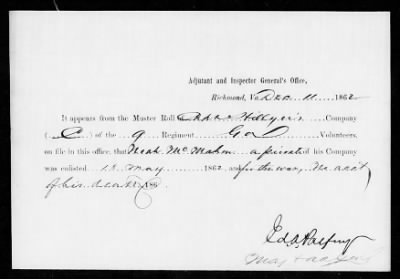 Adjutant and Inspector General's Office,
Richmond, Va. Dec. 11 1862
It appears from the Muster Roll Hillyer's Company
(C) of the 9 Regiment Ga Volunteers,
on file in this office, that Noah McMahon a private of his Company
was enlisted 13 May 1862 and for the war, No acct
of his death 186